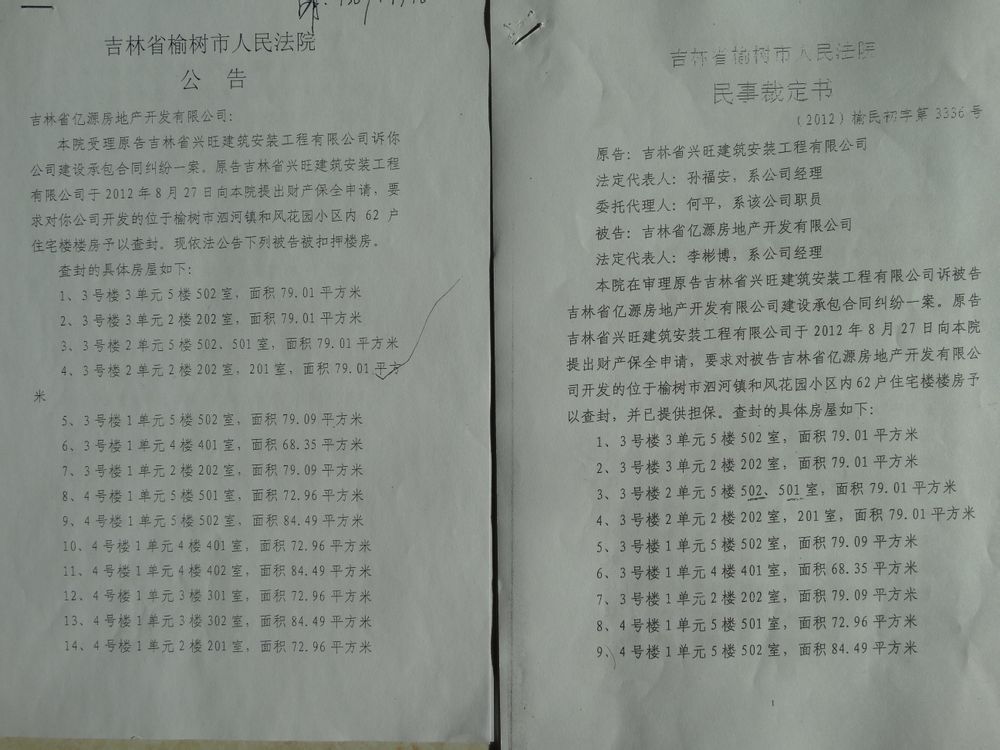 吉林省榆树市人民法院
公 告
吉林省亿源房地产开发有限公司:
本院受理原告吉林省兴旺建筑安装工程有限公司诉你
公司建设承包合同纠纷一案。原告吉林省兴旺建筑安装工程
有限公司于2012年8月27日向本院提出财产保全申请,要
求对你公司开发的位于榆树市泗河镇和风花园小区内 62 户
住宅楼楼房予以查封。现依法公告下列被告被扣押楼房。
查封的具体房屋如下:
1、3号楼3单元5楼502室,面积79.01平方米
2、3号楼3单元2楼202室,面积79.01平方米
3、3号楼2单元5楼502、501室,面积79.01平方米
4、3号楼2单元2楼202室,201室,面积79.01平方
米
5、3号楼1单元5楼502室,面积79.09平方米
6、3号楼1单元4楼401室,面积68.35平方米
7、3号楼1单元2楼202室,面积79.09平方米
8、4号楼1单元5楼501室,面积72.96平方米
9、4号楼1单元5楼502室,面积84.49平方米
10、4号楼1单元4楼401室,面积72.96平方米
11、4号楼1单元4楼402室,面积84.49平方米
12、4号楼1单元3楼301室,面积72.96平方米
13、4号楼1单元3楼302室,面积84.49平方米
14、4号楼1单元2楼201室,面积72.96平方米
吉林省榆树市人民法院
民事裁定书
(2012)榆民初字第3336号
原告:吉林省兴旺建筑安装工程有限公司
法定代表人:孙福安,系公司经理
委托代理人:何平,系该公司职员
被告:吉林省亿源房地产开发有限公司
法定代表人:李彬博,系公司经理
本院在审理原告吉林省兴旺建筑安装工程有限公司诉被告
吉林省亿源房地产开发有限公司建设承包合同纠纷一案。原告
吉林省兴旺建筑安装工程有限公司于2012年8月27日向本院
提出财产保全申请,要求对被告吉林省亿源房地产开发有限公
司开发的位于榆树市泗河镇和风花园小区内62户住宅楼楼房予
以查封,并已提供担保。查封的具体房屋如下:
1、3号楼3单元5楼502室,面积79.01平方米
2、3号楼3单元2楼202室,面积79.01平方米
3、3号楼2单元5楼502、501室,面积79.01平方米
4、3号楼2单元2楼202室,201室,面积79.01平方米
5、3号楼1单元5楼502室,面积79.09平方米
6、3号楼1单元4楼401室,面积68.35平方米
7、3号楼1单元2楼202室,面积79.09平方米
8、4号楼1单元5楼501室,面积72.96平方米
9、4号楼1单元5楼502室,面积84.49平方米
1